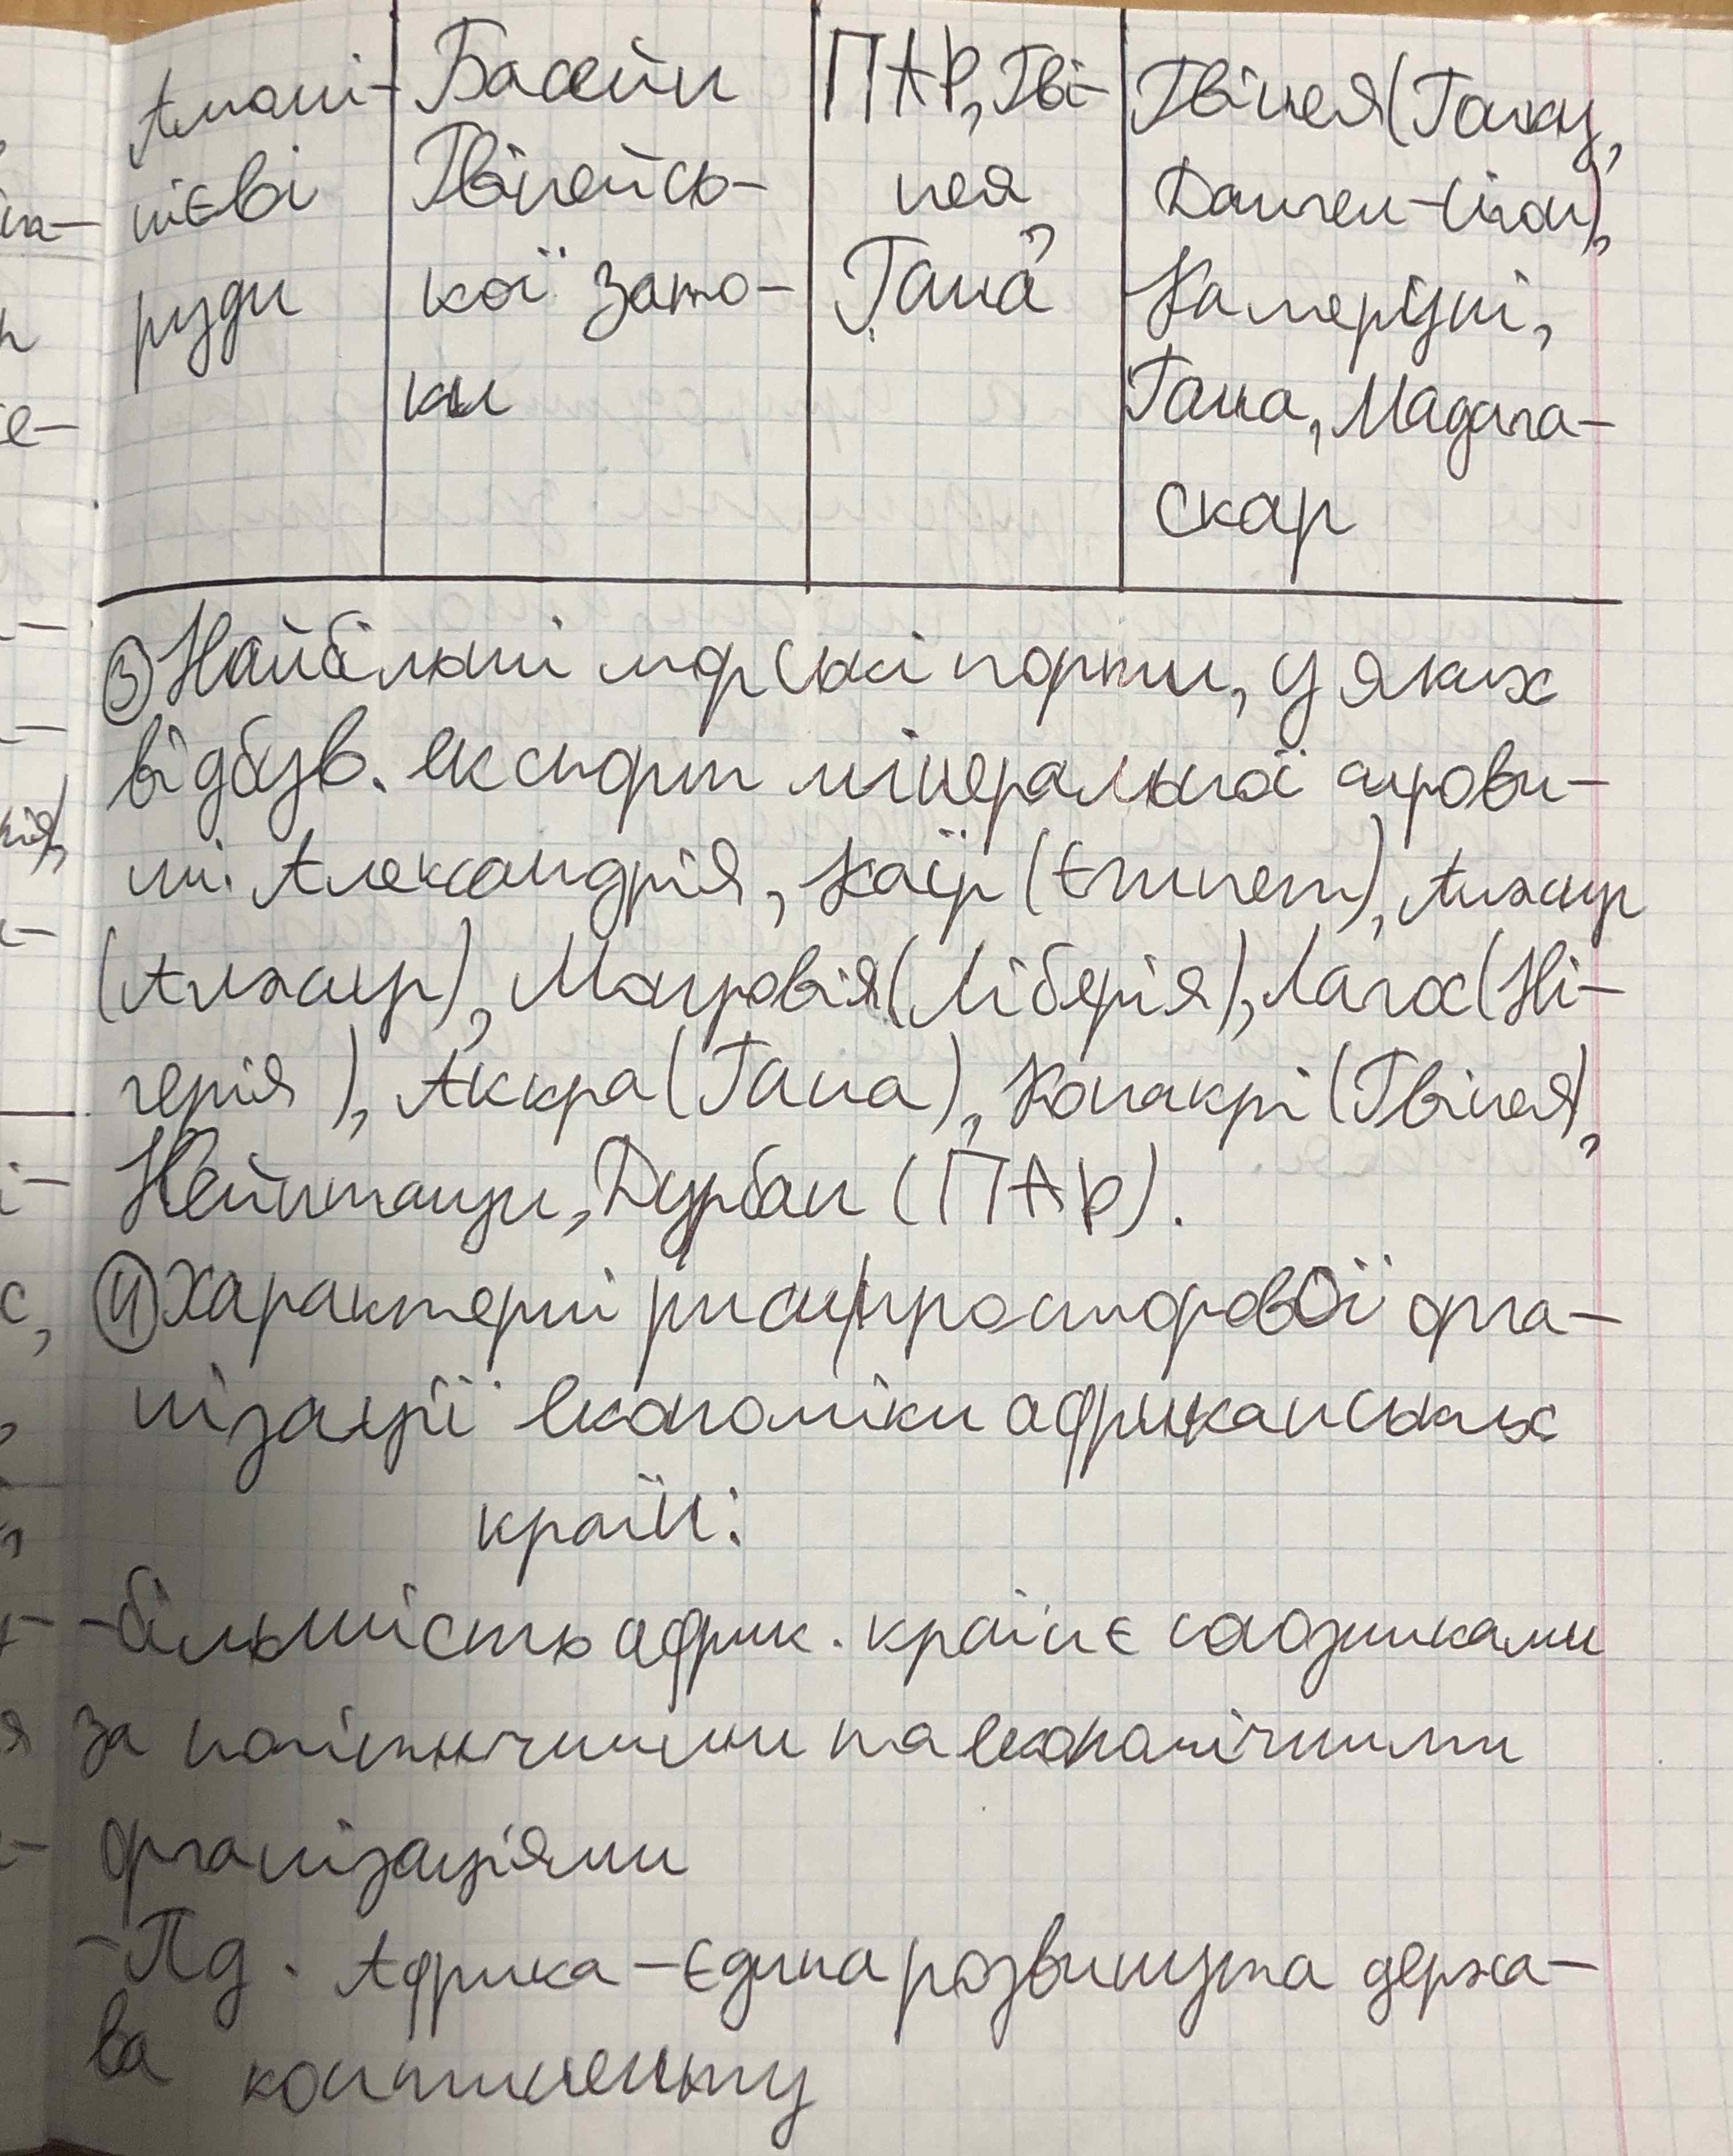 Алюмі-
нієві
руди
Басейн
Гвінейсь-
кої зато-
ки
ПАР, Гві-
нея,
Гана
Гвінея (Томку,
),
Камерун,
Гана, Мадага-
скар
③ Найбільші морські порти, у яких
відбув. експорт мінеральної сирови-
ни. Александрія, Каїр (Єгипет), Алжир
(Алжир), Монровія (Ліберія), Лагос (Ні-
герія), Аккра (Гана), Конакрі (Гвінея),
Кейптаун, Дурбан (ПАР).
④ Характерні риси просторової орга-
нізації економіки африканських
країн:
- більшість африк. країн є
за політичними та економічними
організаціями
- Пд. Африка - єдина розвинута держа-
ва континенту